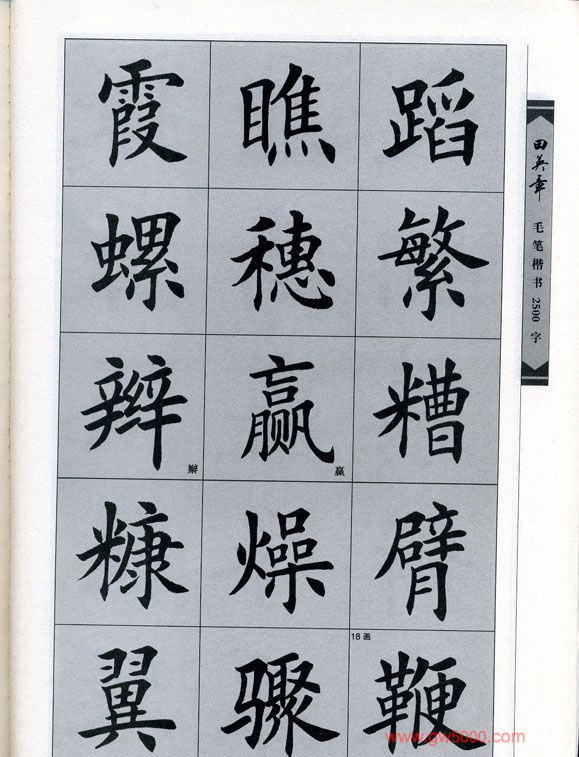 霞 瞧 蹈
螺 穗 繁
辫 赢 糟
辫 赢
糠 燥 臂
18画
翼 骤 鞭
田英章 毛笔楷书2500字
www.gw5000.com